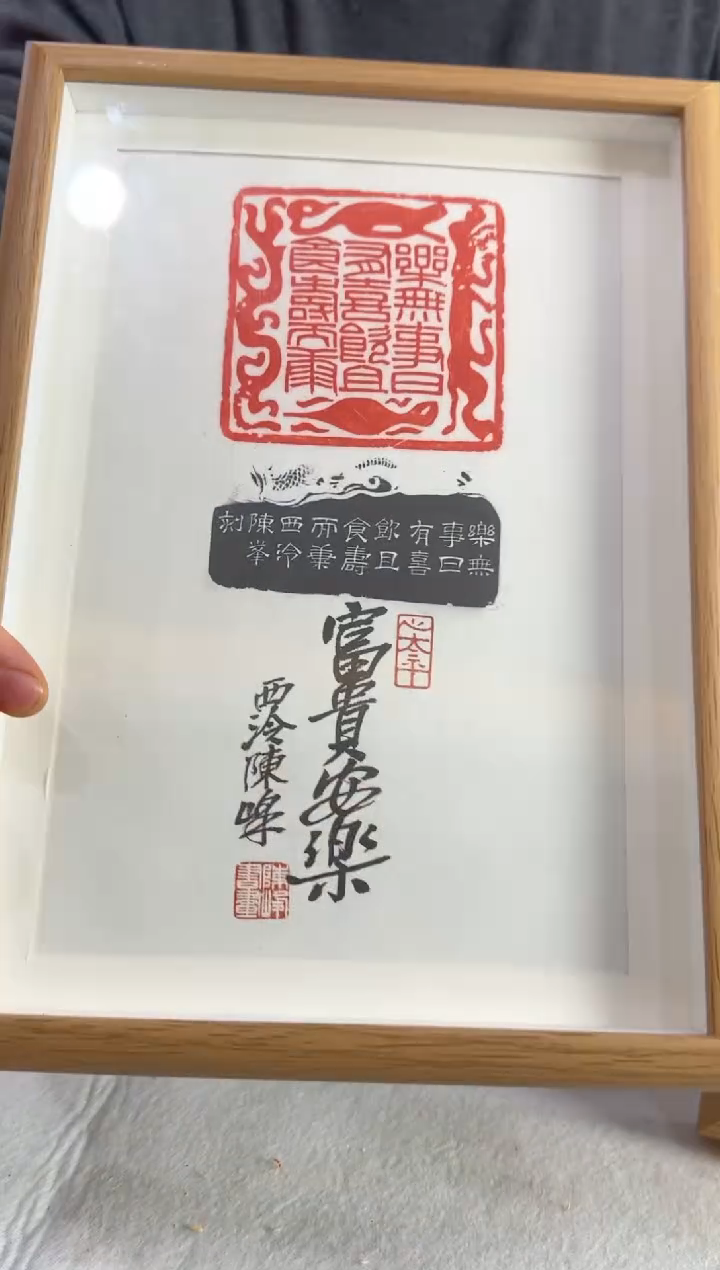 樂無事日
有喜飲且
食壽而康
樂無
事日
有喜
飲且
食壽
而康
西泠
陳峯
刻
心太平
富貴安樂
西泠陳峰
陳峰
書畫